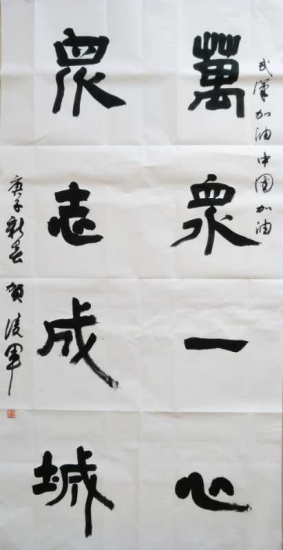 武漢加油中国加油
萬眾一心
眾志成城
庚子新春 賀陵軍